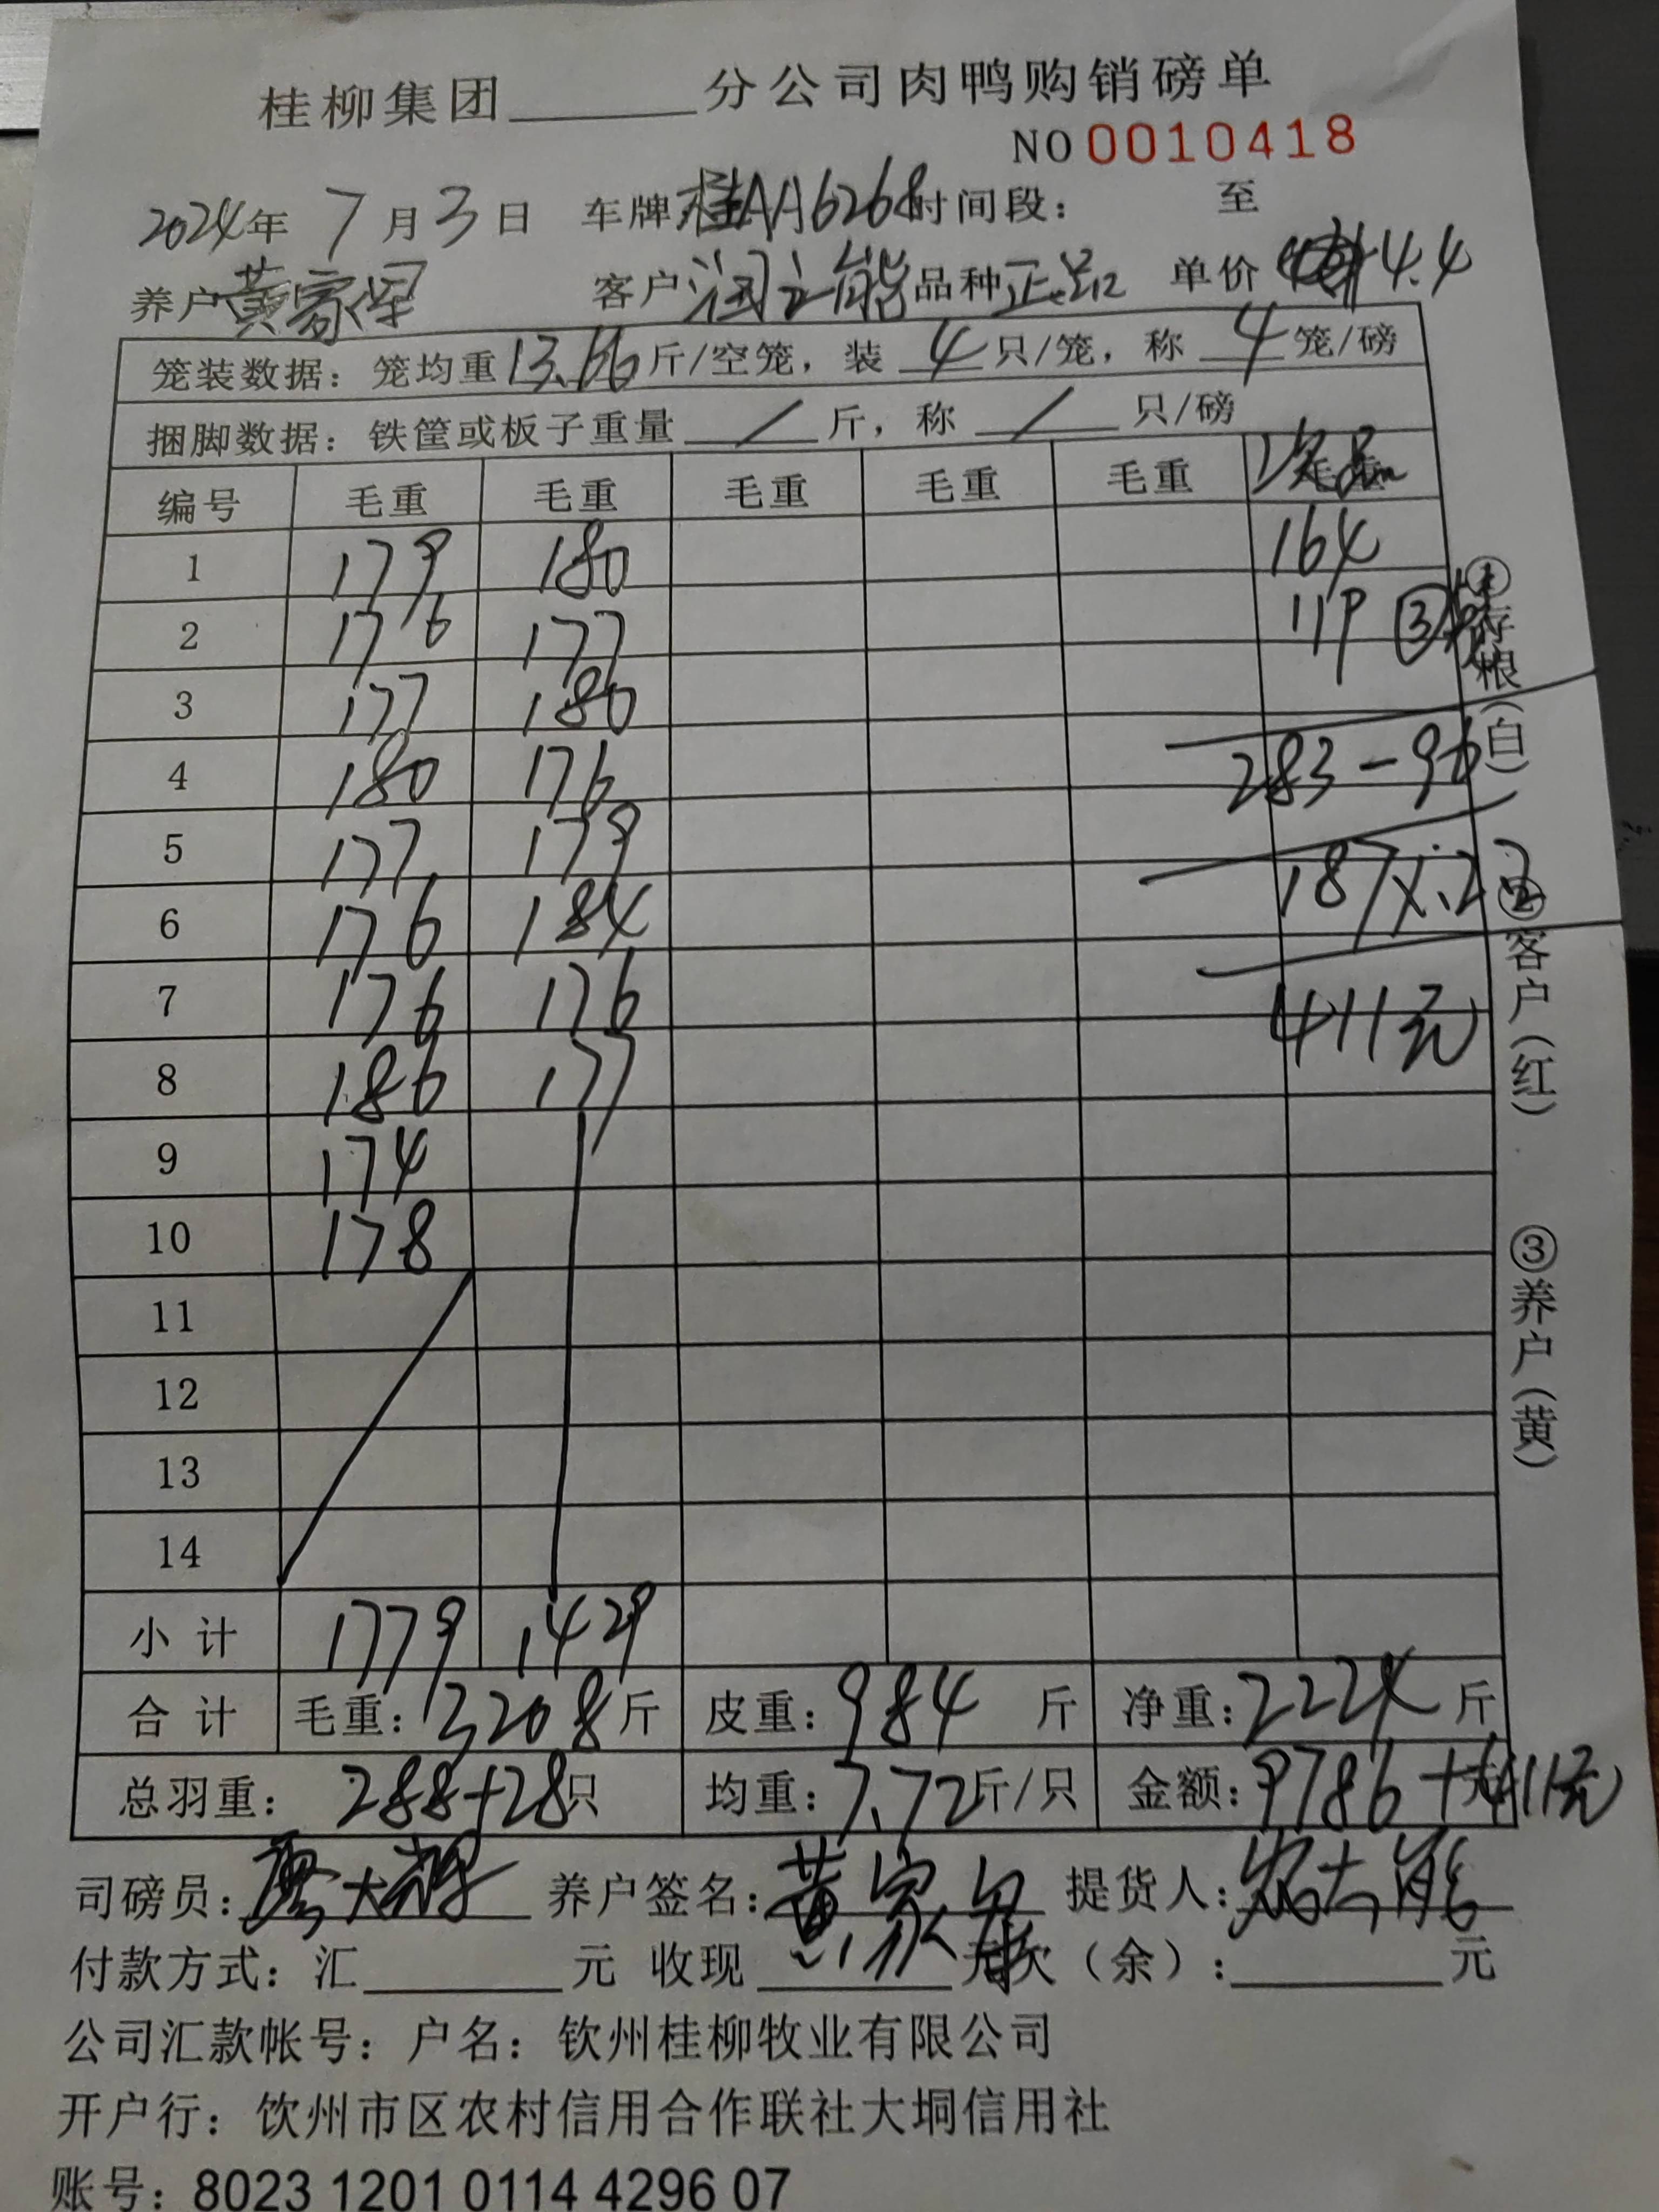 桂柳集团______分公司肉鸭购销磅单
NO 0010418
2024年 7月3日 车牌桂AA6268时间段： 至
养户黄家 客户 品种正品 单价 4.4
笼装数据：笼均重13.66斤/空笼，装 4 只/笼，称 4 笼/磅
捆脚数据：铁筐或板子重量 / 斤，称 / 只/磅
编号 毛重 毛重 毛重 毛重 毛重 次品
1 179 180 164
2 176 177 119 ③
3 177 180
4 180 176 283-96
5 177 179 187×2.2
6 176 184
7 176 176 411元
8 186 177
9 174
10 178
11
12
13
14
小计 1779 1429
合计 毛重：3208斤 皮重：984 斤 净重：2224斤
总羽重：288+28只 均重：7.72斤/只 金额：9786+411元
司磅员：大 养户签名：黄家 提货人：大能
付款方式：汇______元 收现______元欠（余）：______元
公司汇款帐号：户名：钦州桂柳牧业有限公司
开户行：饮州市区农村信用合作联社大垌信用社
账号：8023 1201 0114 4296 07
①存根（白） ②客户（红） ③养户（黄）